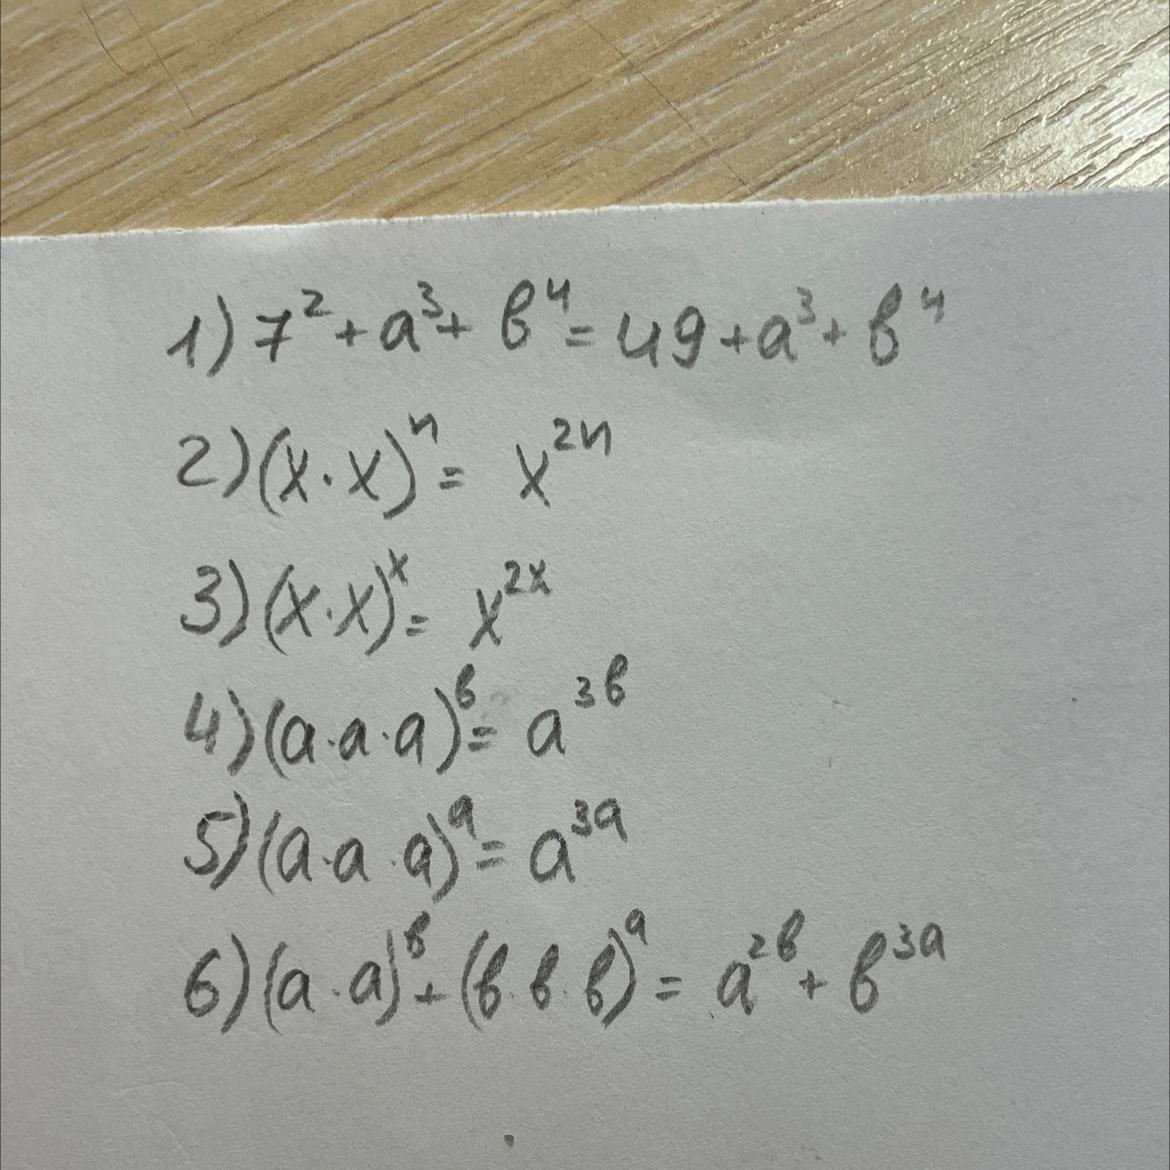 1) 7² + a³ + b⁴ = 49 + a³ + b⁴
2) (x · x)ⁿ = x²ⁿ
3) (x · x)ˣ = x²ˣ
4) (a · a · a)ᵇ = a³ᵇ
5) (a · a · a)ᵃ = a³ᵃ
6) (a · a)ᵇ + (b · b · b)ᵃ = a²ᵇ + b³ᵃ